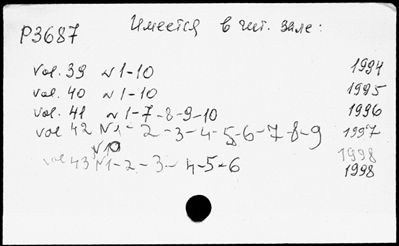 P3687 Имеется в чит. зале:
vol. 39 N 1-10 1994
vol. 40 N 1-10 1995
vol. 41 N 1-7-8-9-10 1996
vol 42 N1-2-3-4-5-6-7-8-9 1997
N10 1998
vol 43 N1-2-3-4-5-6 1998